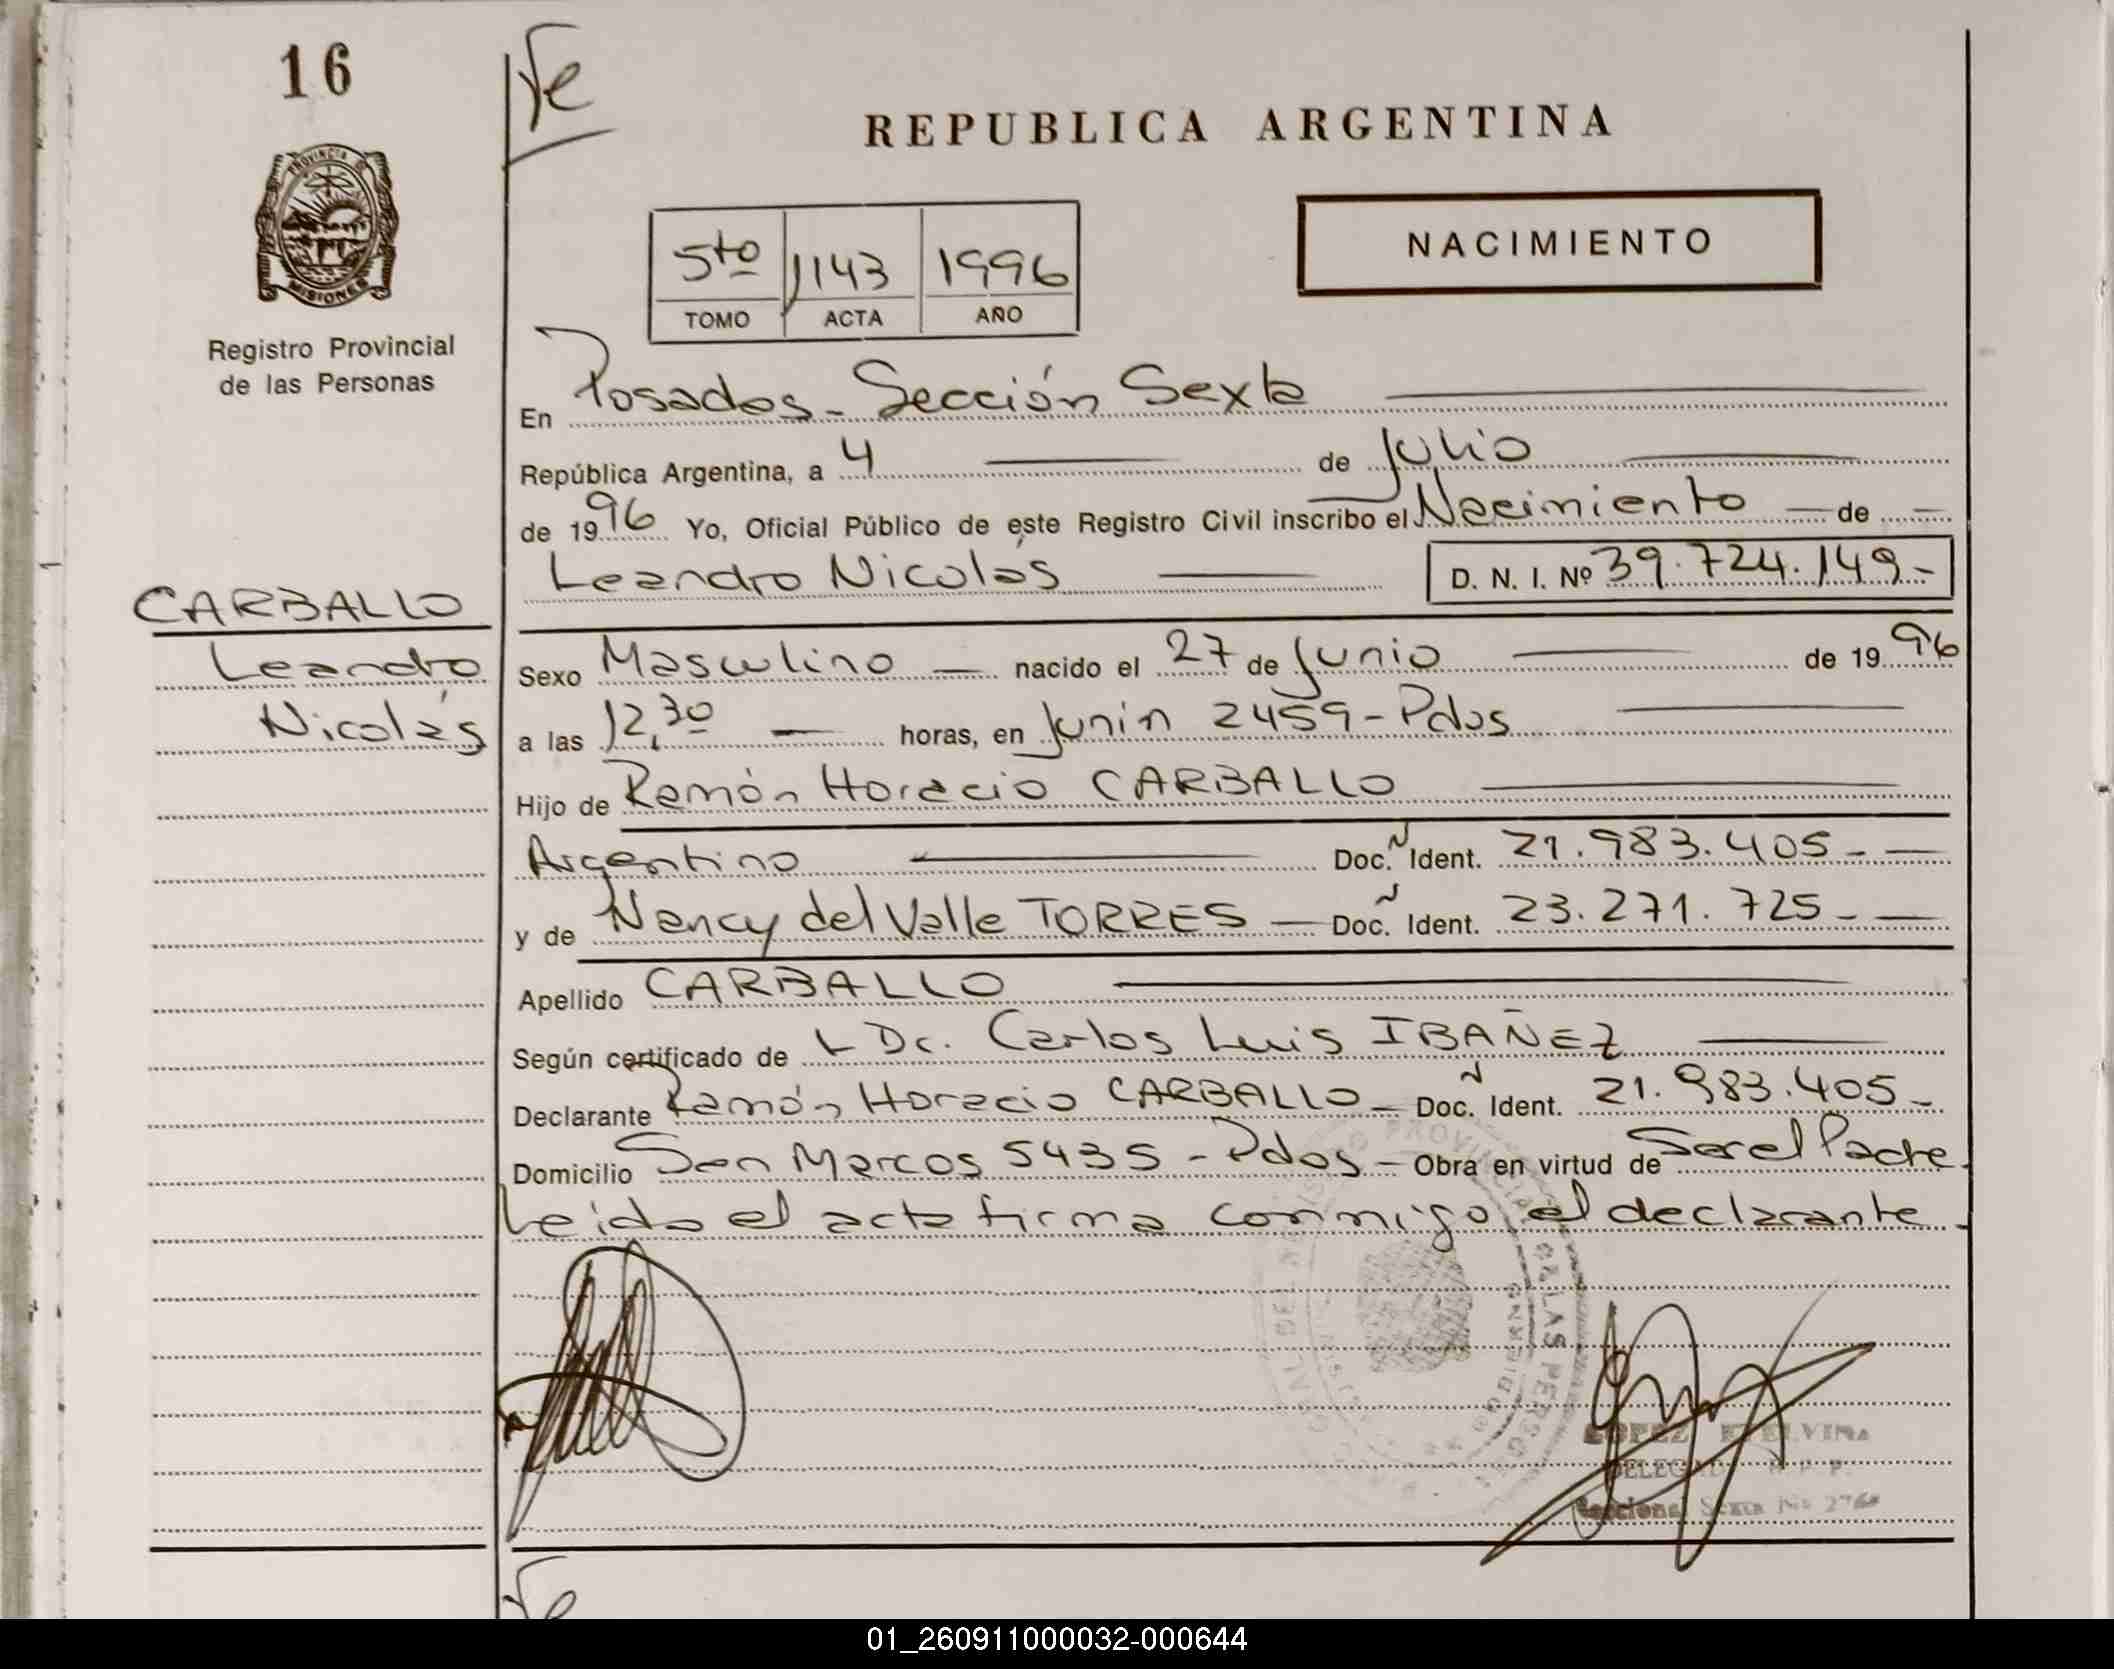 16
Te
REPUBLICA ARGENTINA
PROVINCIA DE
MISIONES
Registro Provincial
de las Personas
5to 1143 1996
TOMO ACTA AÑO
NACIMIENTO
En Posadas - Sección Sexta
República Argentina, a 4 de Julio
de 1996 Yo, Oficial Público de este Registro Civil inscribo el Nacimiento de
Leandro Nicolás D. N. I. Nº 39.724.149-
CARBALLO
Leandro
Nicolás
Sexo Masculino nacido el 27 de Junio de 1996
a las 12,30 horas, en Junín 2459 - Pdas
Hijo de Ramón Horacio CARBALLO
Argentino Doc. Ident. 21.983.405-
y de Nancy del Valle TORRES Doc. Ident. 23.271.725-
Apellido CARBALLO
Según certificado de Dr. Carlos Luis IBAÑEZ
Declarante Ramón Horacio CARBALLO Doc. Ident. 21.983.405-
Domicilio San Marcos 5435 - Pdas - Obra en virtud de Ser el Padre.
Leida el acta firma conmigo el declarante.
DE LAS PERSONAS
LOPEZ ETELVINA
DELEGADA R. P. P.
Seccional Sexta
01_260911000032-000644